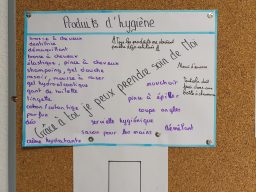 Produits d'hygiène
brosse à cheveux
dentifrice
démaquillant
brosse à cheveux
élastique, pince à cheveux
shampoing, gel douche
rasoir, mousse à raser
gel hydroalcoolique
gant de toilette
lingette
coton / coton tige
parfum
déo
crème hydratante
Grâce à toi je peux prendre soin de Moi
mouchoir
pince à épiler
coupe ongles
serviette hygiénique
savon pour les mains
démêlant